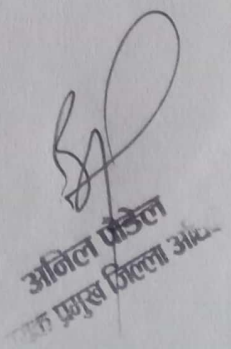 अनिल पौडेल
प्रमुख जिल्ला